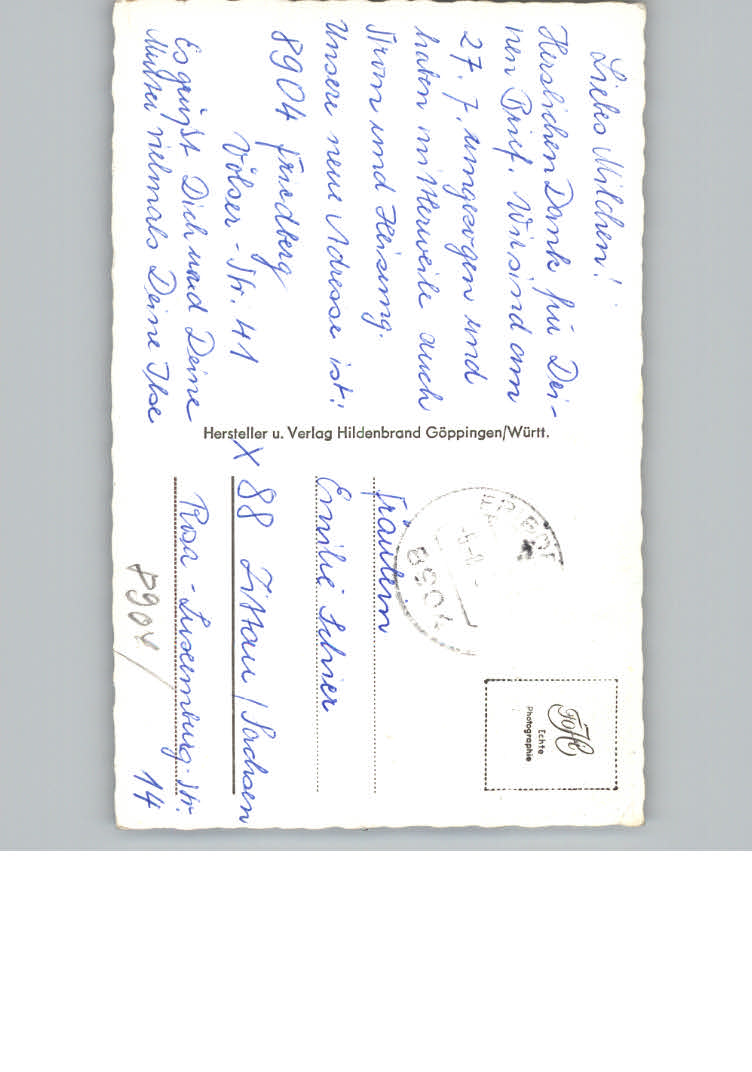 Liebes Milchen!
Herzlichen Dank für Dei-
nen Brief. Wir sind am
27. 7. umgezogen und
haben mittlerweile auch
Strom und Heizung.
Unsere neue Adresse ist:
8904 Friedberg
Völser-Str. 41
Es grüßt Dich und Deine
Mutter vielmals Deine Ilse
Hersteller u. Verlag Hildenbrand Göppingen/Württ.
8904
FoHi
Echte
Photographie
Fräulein
Emilie Schier
X 88 Zittau / Sachsen
Rosa-Luxemburg-Str.
14
8904/